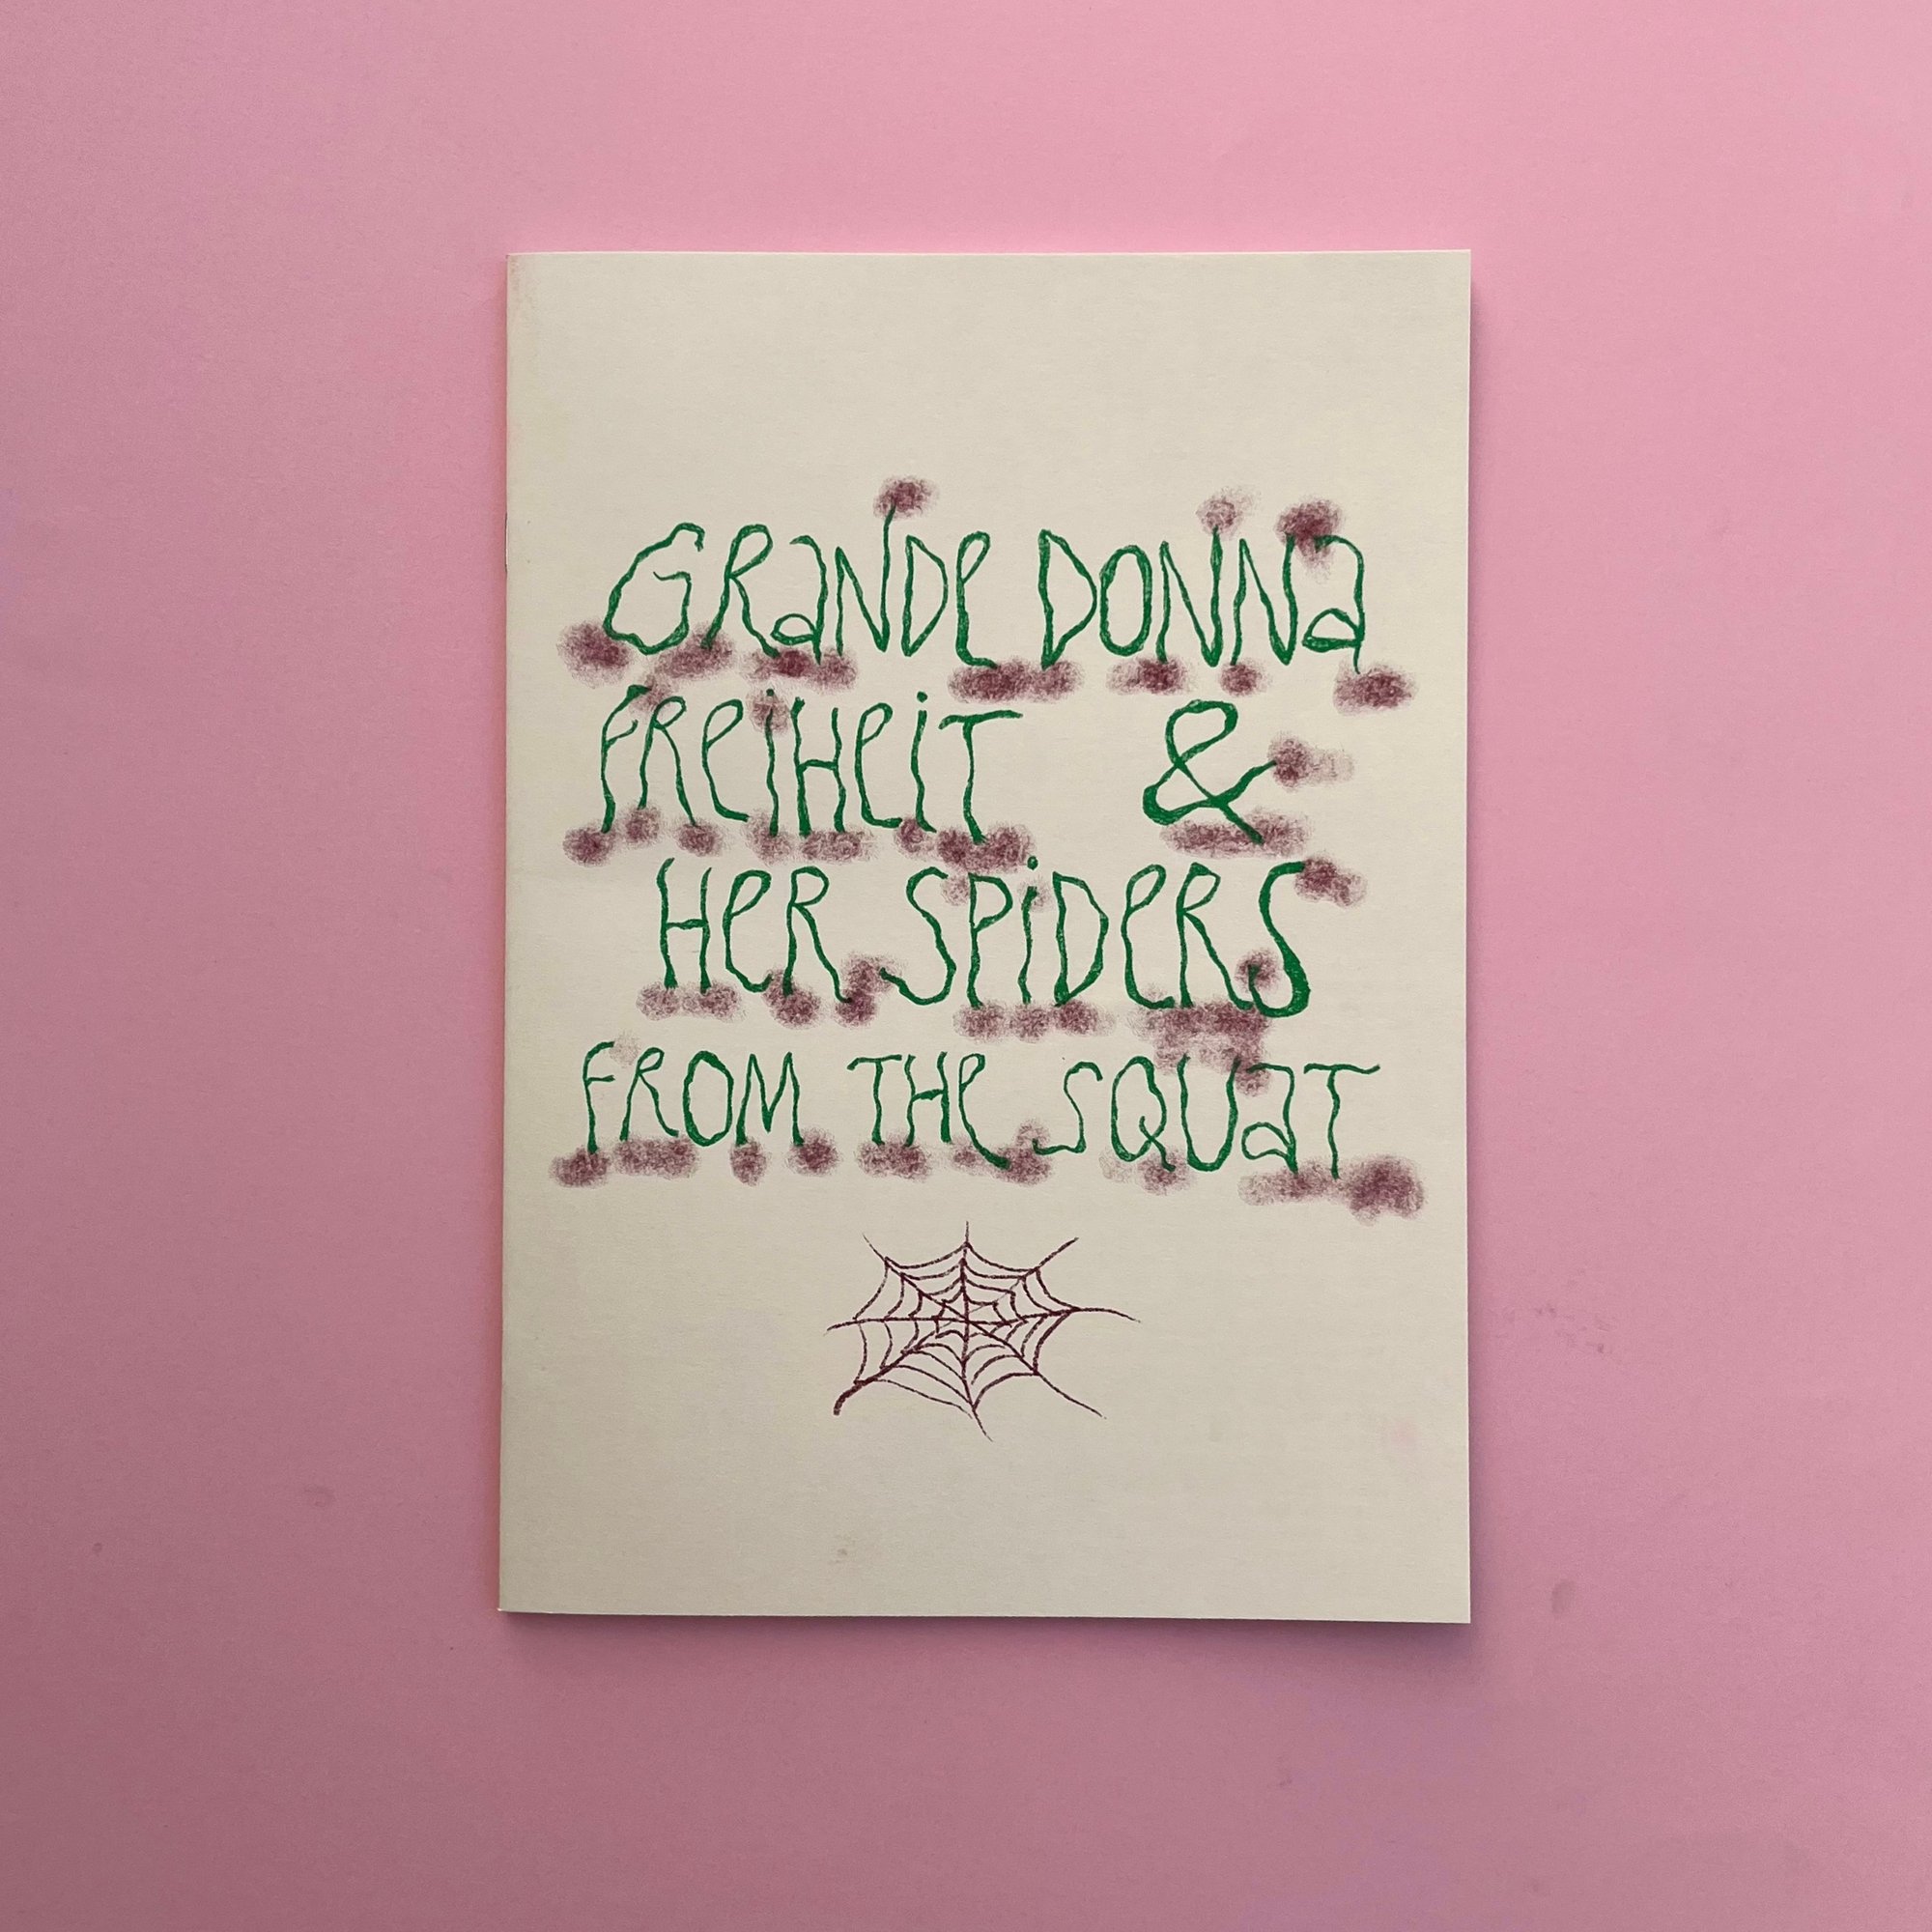 GRaNDe DONNa
FReiHeiT &
HeR SPiDeRS
FROM THe SQUaT